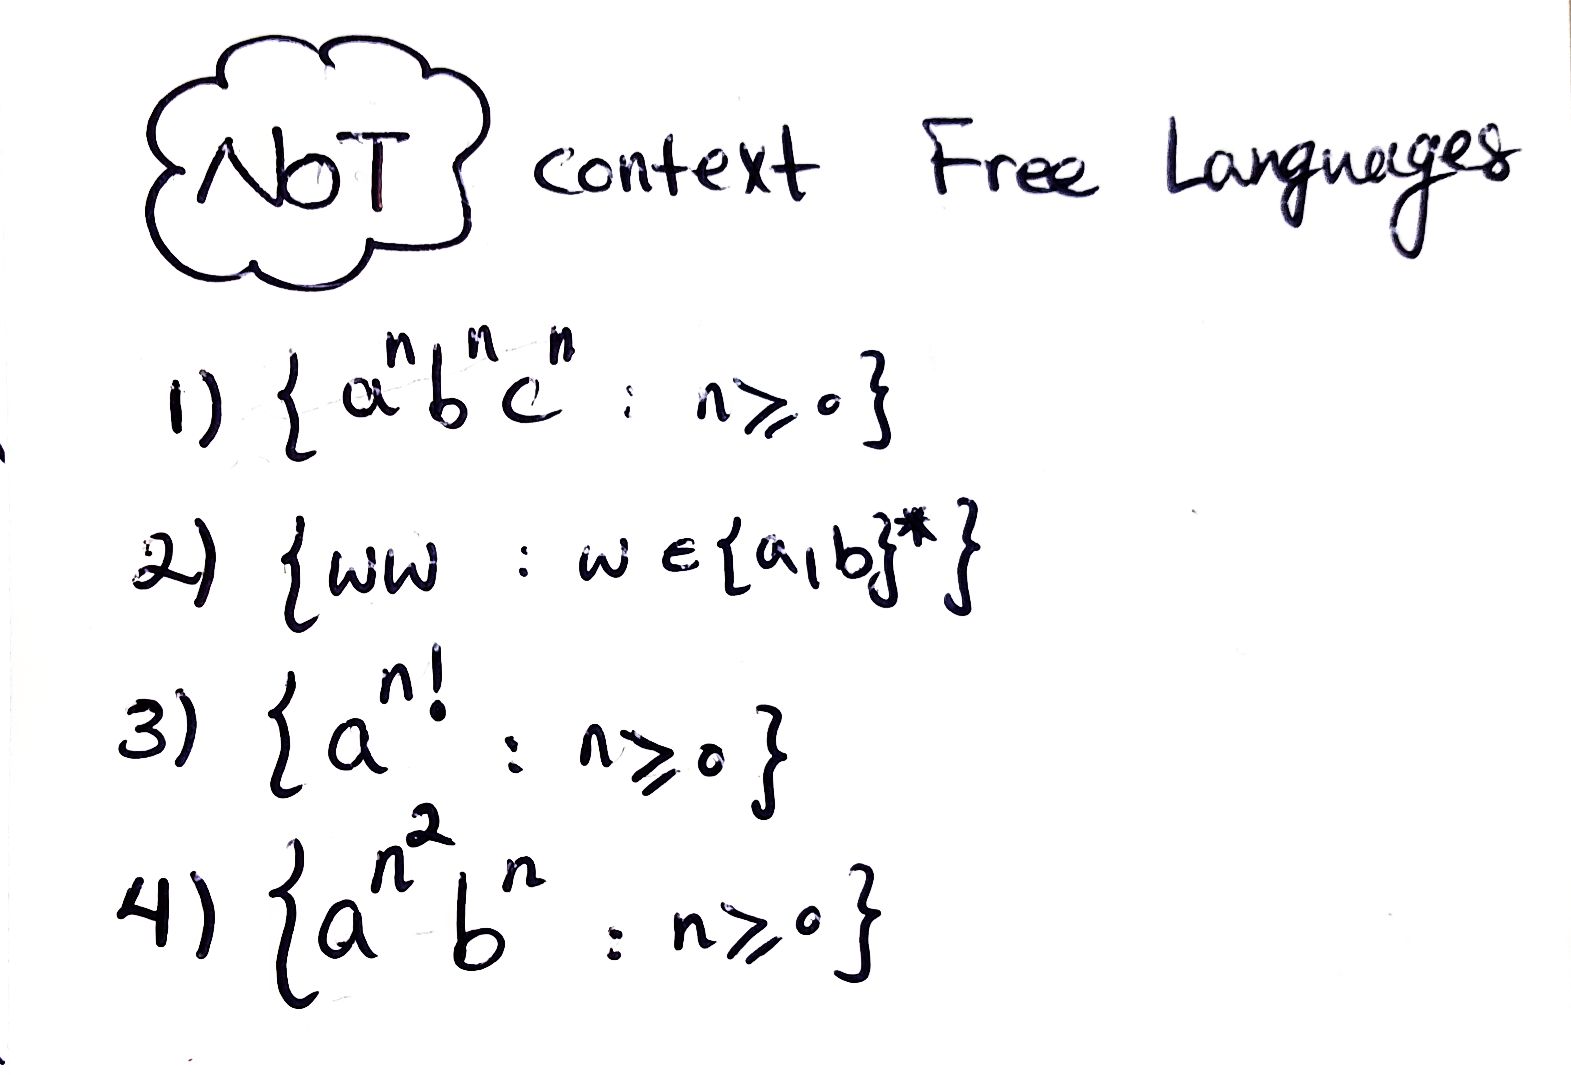 NOT context Free Languages
1) { aⁿbⁿcⁿ : n ⩾ 0 }
2) { ww : w ∈ {a,b}* }
3) { aⁿ! : n ⩾ 0 }
4) { a^n² bⁿ : n ⩾ 0 }